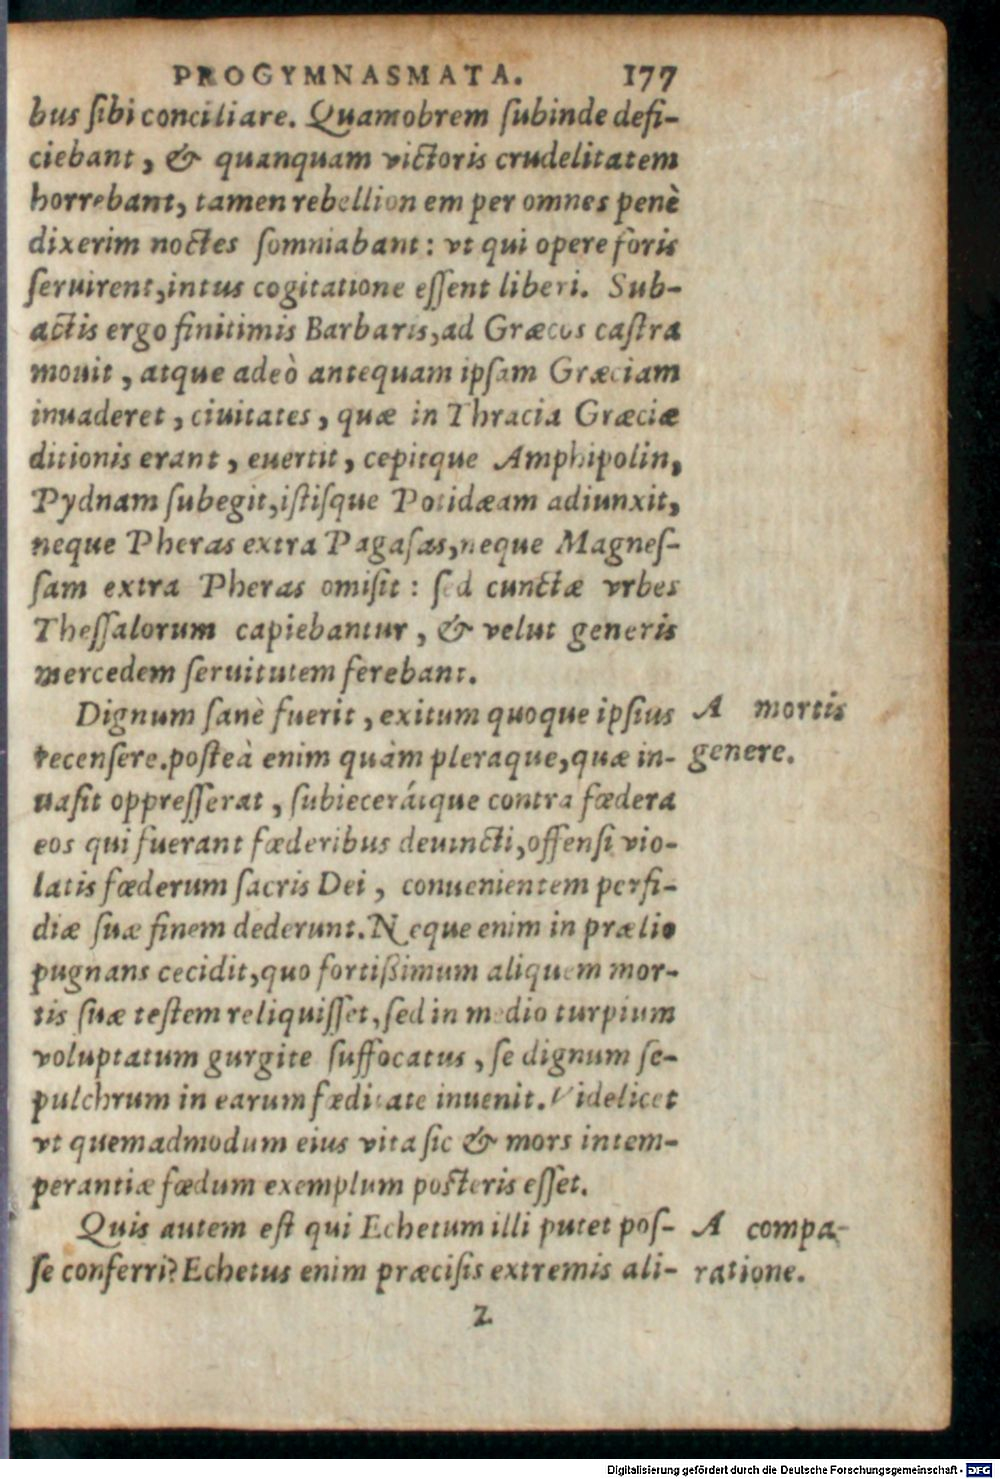 PROGYMNASMATA. 177
bus sibi conciliare. Quamobrem subinde defi-
ciebant, & quanquam victoris crudelitatem
horrebant, tamen rebellionem per omnes penè
dixerim noctes somniabant: vt qui opere foris
seruirent, intus cogitatione essent liberi. Sub-
actis ergo finitimis Barbaris, ad Græcos castra
mouit, atque adeò antequam ipsam Græciam
inuaderet, ciuitates, quæ in Thracia Græciæ
ditionis erant, euertit, cepitque Amphipolin,
Pydnam subegit, istisque Potidæam adiunxit,
neque Pheras extra Pagasas, neque Magnes-
sam extra Pheras omisit: sed cunctæ vrbes
Thessalorum capiebantur, & velut generis
mercedem seruitutem ferebant.
Dignum sanè fuerit, exitum quoque ipsius
A mortis
recensere. posteà enim quàm pleraque, quæ in-
genere.
uasit oppresserat, subiecerátque contra fœdera
eos qui fuerant fœderibus deuincti, offensi vio-
latis fœderum sacris Dei, conuenientem perfi-
diæ suæ finem dederunt. Neque enim in prælio
pugnans cecidit, quo fortißimum aliquem mor-
tis suæ testem reliquisset, sed in medio turpium
voluptatum gurgite suffocatus, se dignum se-
pulchrum in earum fœditate inuenit. Videlicet
vt quemadmodum eius vita sic & mors intem-
perantiæ fœdum exemplum posteris esset.
Quis autem est qui Echetum illi putet pos-
A compa-
se conferri? Echetus enim præcisis extremis ali-
ratione.
Z
Digitalisierung gefördert durch die Deutsche Forschungsgemeinschaft - DFG